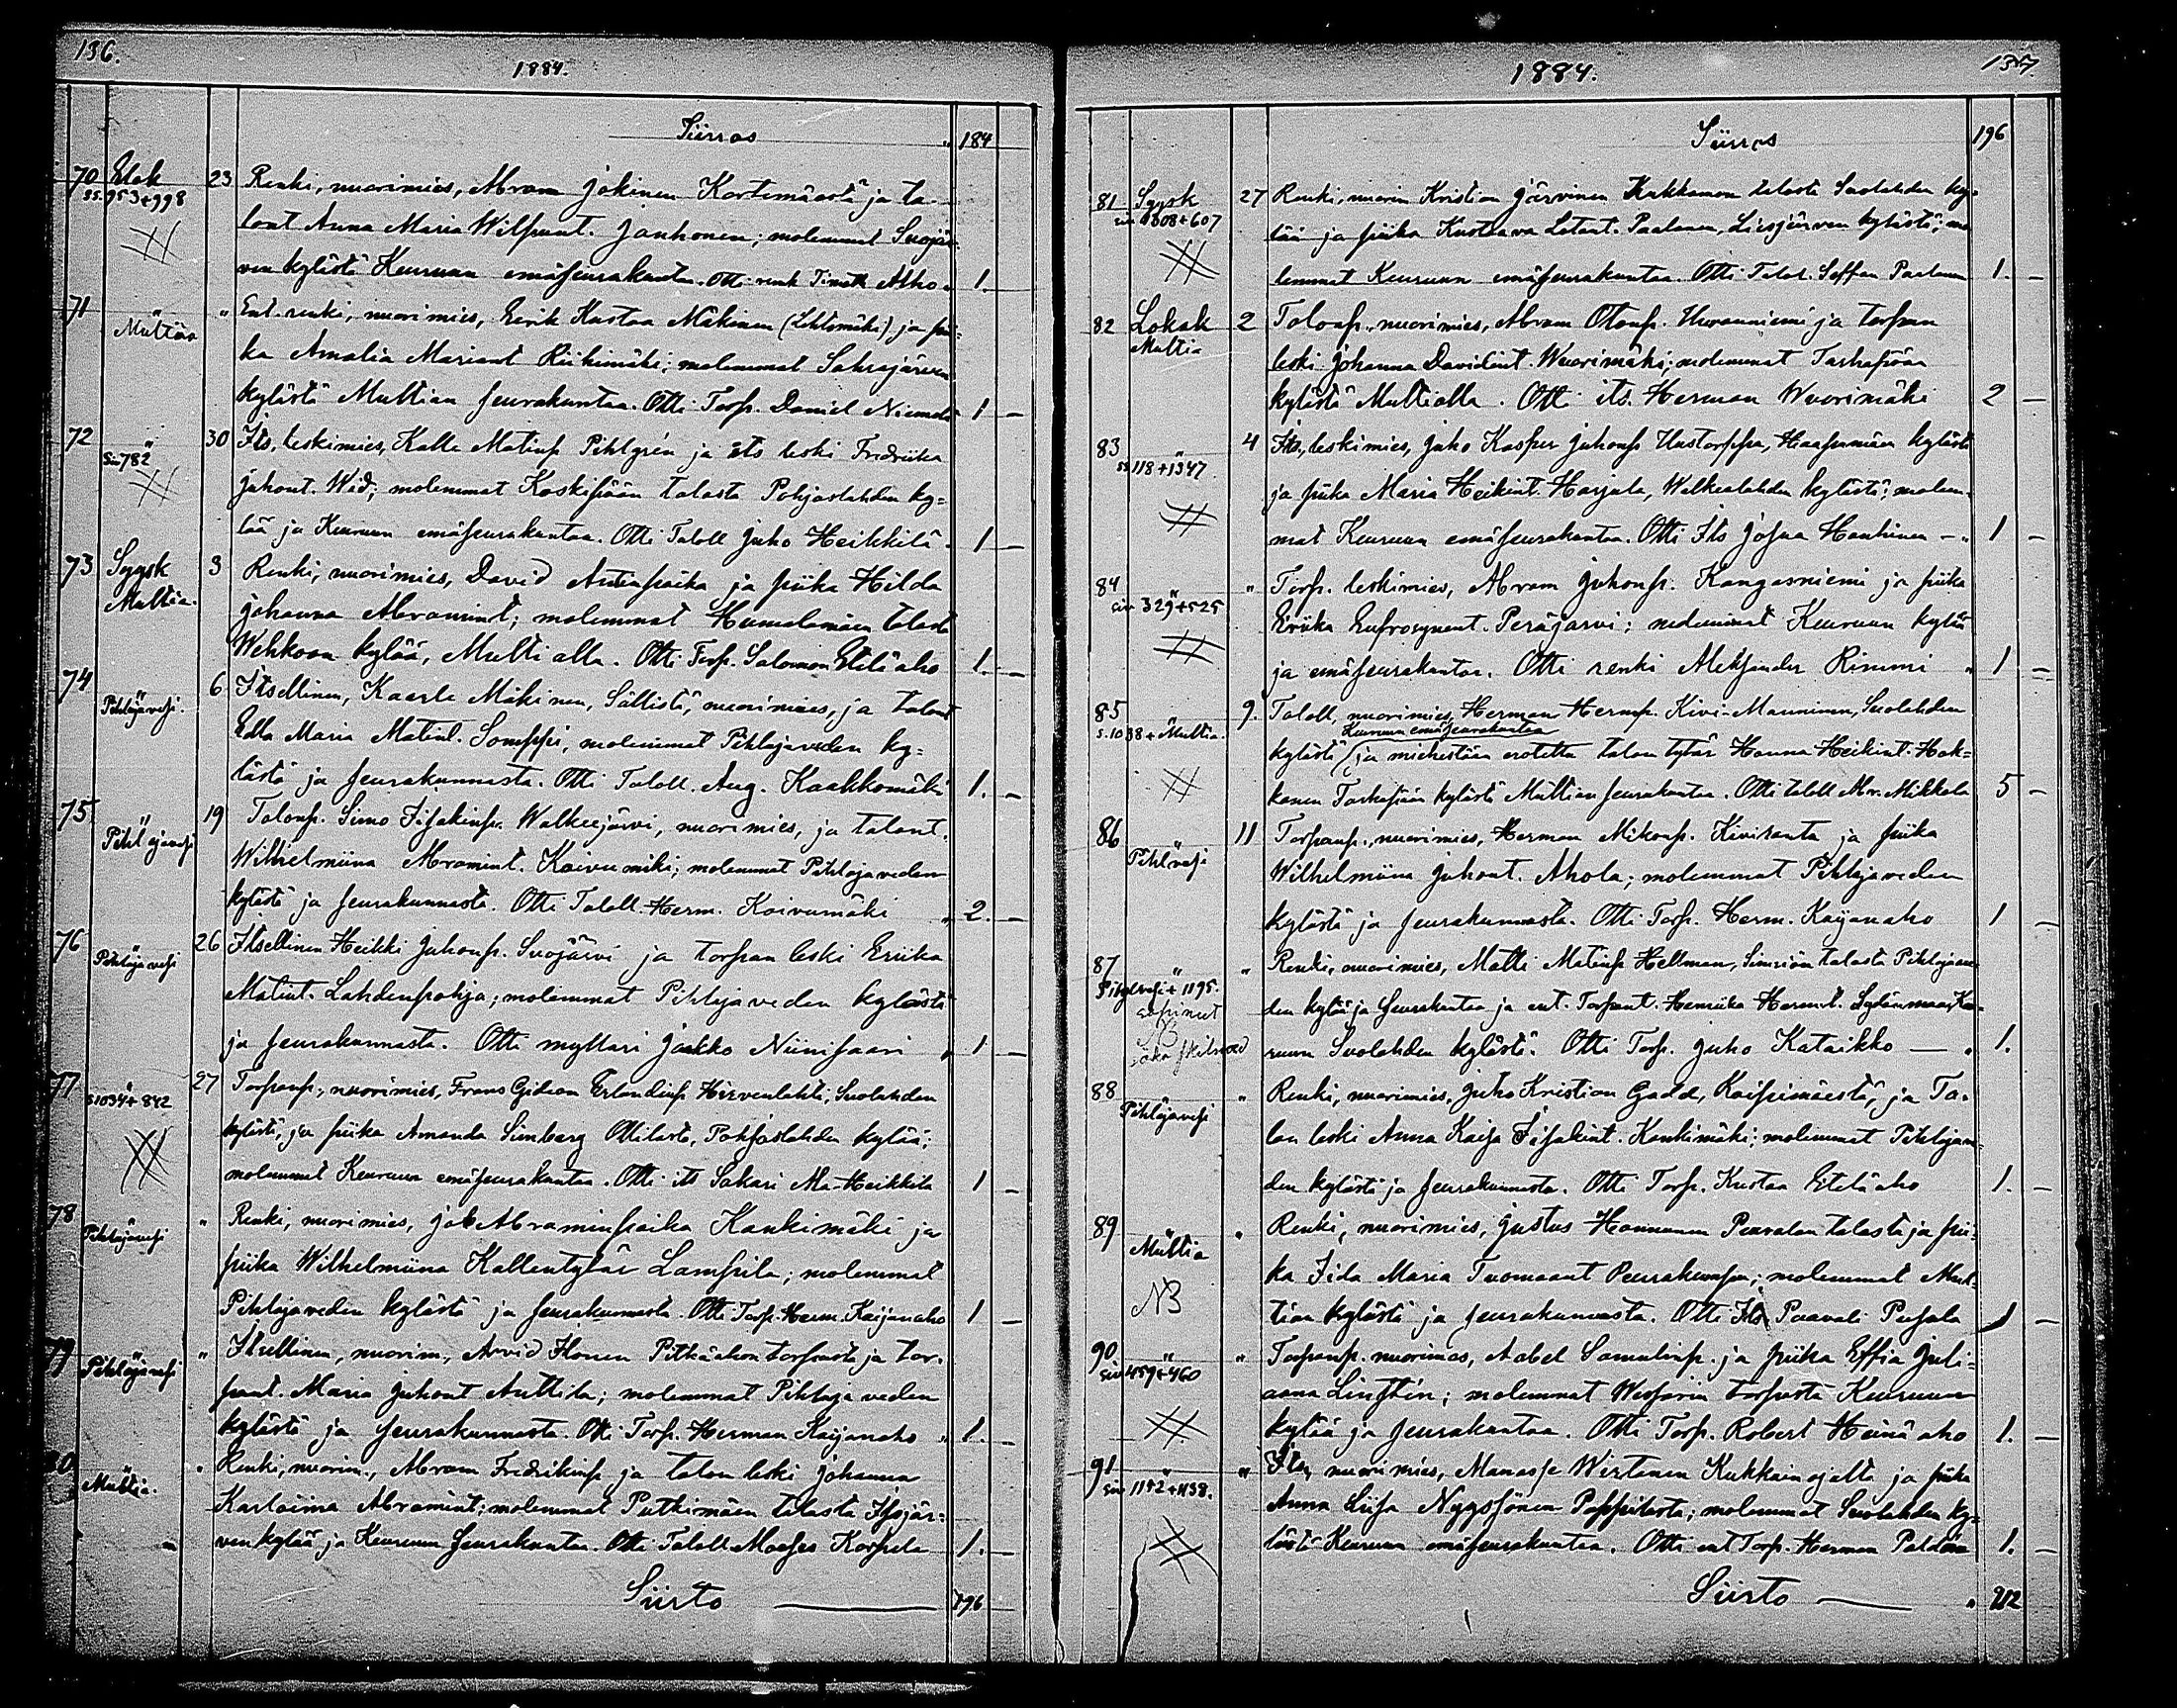 136.
1884.
Siirros " 184
70 Elok 23 Renki, nuorimies, Abram Jokinen Kortemäestä ja ta-
ss. 953+998 lont Anna Maria Wilpunt. Janhonen; molemmat Suojär-
ven kylästä Keuruun emäseurakuntaa. Otti renk Timoth Alho. 1.
71 " " Ent. renki, nuorimies, Eerik Kustaa Mäkinen (Lehtomäki) ja pii-
Multia ka Amalia Mariant Riihimäki; molemmat Sahrajärven
kylästä Multian seurakuntaa. Otti Torp. Daniel Niemelä 1 —
72 " 30 Its. leskimies, Kalle Matinp Pihlgrén ja its leski Fredriika
Siv 782 Juhont. Wid; molemmat Koskipään talosta Pohjoslahden ky=
lää ja Keuruun emäseurakuntaa. Otti Taloll Juho Heikkilä. 1 —
73 Syysk 3 Renki, nuorimies, David Antinpoika ja piika Hilda
Multia. Johanna Abramint; molemmat Humalamäen talosta
Wehkoon kylää, Multialla. Otti Torp. Salomon Eteläaho 1. —
74 " 6 Itsellinen, Kaarle Mäkinen, Sällistä, nuorimies, ja talont
Pihlajavesi. Edla Maria Matint. Somppi, molemmat Pihlajaveden ky=
lästä ja seurakunnasta. Otti Taloll. Aug. Kaakkomäki 1. —
75 " 19 Talonp. Simo Iisakinp. Walkeejärvi, nuorimies, ja talont.
Pihlajavesi Wilhelmiina Abramint. Koivumäki; molemmat Pihlajaveden
kylästä ja seurakunnasta. Otti Taloll. Herm. Koivumäki " 2. —
76 " 26 Itsellinen Heikki Juhonp. Suojärvi ja torpan leski Eriika
Pihlajavesi Matint. Lahdenpohja; molemmat Pihlajaveden kylästä
ja seurakunnasta. Otti myllari Jaakko Niinisaari " 1 —
77 " 27 Torpanp., nuorimies, Frans Gideon Erlandinp Hirvenlahti, Suolahden
s1034+842 kylästä, ja piika Amanda Simberg Ottilasta, Pohjoslahden kylää;
molemmat Keuruun emäseurakuntaa. Otti its Sakari Ala-Heikkilä 1 —
78 " Renki, nuorimies, Jak Abraminpoika Kankimäki ja
Pihlajavesi piika Wilhelmiina Kallentytär Lampila; molemmat
Pihlajaveden kylästä ja seurakunnasta. Otti Torp. Herm. Kaijanaho 1 —
79 " " Itsellinen, nuorim., Arvid Ilonen Pitkäahon torpasta ja tor-
Pihlajavesi pant. Maria Juhont Anttila; molemmat Pihlajaveden
kylästä ja seurakunnasta. Otti Torp. Herman Kaijanaho " 1. —
80 " " Renki, nuorim., Abram Fredrikinp ja talon leski Johanna
Multia. Karloiina Abramint; molemmat Putkimäen talosta Ilsjär=
ven kylää ja Keuruun seurakuntaa. Otti Taloll Moeses Korpela 1. —
Siirto — 196
1884.
137.
Siirros 196
81 Syysk 27 Renki, nuorim Kristian Järvinen Kukkamon talosta Suolahden ky=
siv 1808+607 lää ja piika Kustaava Lotant. Paalanen, Liesjärven kylästä; mo
lemmat Keuruun emäseurakuntaa. Otti Talol. Seffan Paalanen 1. —
82 Lokak 2 Talonp., nuorimies, Abram Otonp. Huvanniemi ja torpan
Multia leski Johanna Davidint. Wuorimäki; molemmat Tarhapään
kylästä Multialla. Otti its. Herman Wuorimäki 2 —
83 " 4 Its., leskimies, Juho Kasper Juhonp Uustorppa, Haapamäen kylästä
ss 118+1347 ja piika Maria Heikint. Harjula, Walkealahden kylästä; molem-
mat Keuruun emäseurakuntaa. Otti Its Josua Hanhinen — " 1 —
84 " " Torp. leskimies, Abram Juhonp. Kangasniemi ja piika
siv 329+525 Eriika Eufrosynent. Peräjärvi; molemmat Keuruun kylää
ja emäseurakuntaa. Otti renki Aleksander Rimmi " 1 —
85 9. Taloll, nuorimies, Herman Hermp. Kivi-Manninen, Suolahden
s.1038+Multia. Keuruun emäseurakuntaa
kylästä (ja miehestään erotettu talon tytär Hanna Heikint. Hok=
kanen Tarhapään kylästä Multian seurakuntaa. Otti taloll Abr. Mikkola 5 —
86 " 11 Torpanp., nuorimies, Herman Mikonp. Kiviranta ja piika
Pihl.vesi Wilhelmiina Juhont. Ahola; molemmat Pihlajaveden
kylästä ja seurakunnasta. Otti Torp. Herm. Kaijanaho 1 —
87 " " Renki, nuorimies, Matti Matinp Hellman, Simiön talosta Pihlajave
Pihlvesi+1195. den kylää ja seurakuntaa ja ent. Torpant. Henriika Hermt. Sydänmaa, Keu-
sopineet
NB
ruun Suolahden kylästä. Otti Torp. Juho Kataikko — " 1.
88 " Renki, nuorimies, Juho Kristian Gadd, Kaipimäestä, ja Ta-
Pihlajavesi lon leski Anna Kaisa Iisakint. Kankimäki; molemmat Pihlajave=
den kylästä ja seurakunnasta. Otti Torp. Kustaa Eteläaho 1. —
89 " Renki, nuorimies, Justus Hannunen Peuralan talosta ja pii=
Multia ka Iida Maria Tuomaant Peurakumpu; molemmat Mul=
NB tian kylästä ja seurakunnasta. Otti Its Paavali Pusala 1 —
90 " " Torpanp. nuorimies, Aabel Samulinp. ja piika Effia Juli=
siv 459+460 aana Linstén; molemmat Wesarin torpasta Keuruun
kylää ja seurakuntaa. Otti Torp. Robert Heinäaho 1. —
91 " " Its, nuorimies, Manasse Wirtanen Kukkainojalta ja piika
siv 1142+1138. Anna Liisa Nyyssönen Poppilasta; molemmat Suolahden ky=
lästä Keuruun emäseurakuntaa. Otti ent Torp. Herman Paldán 1. —
Siirto — " 212